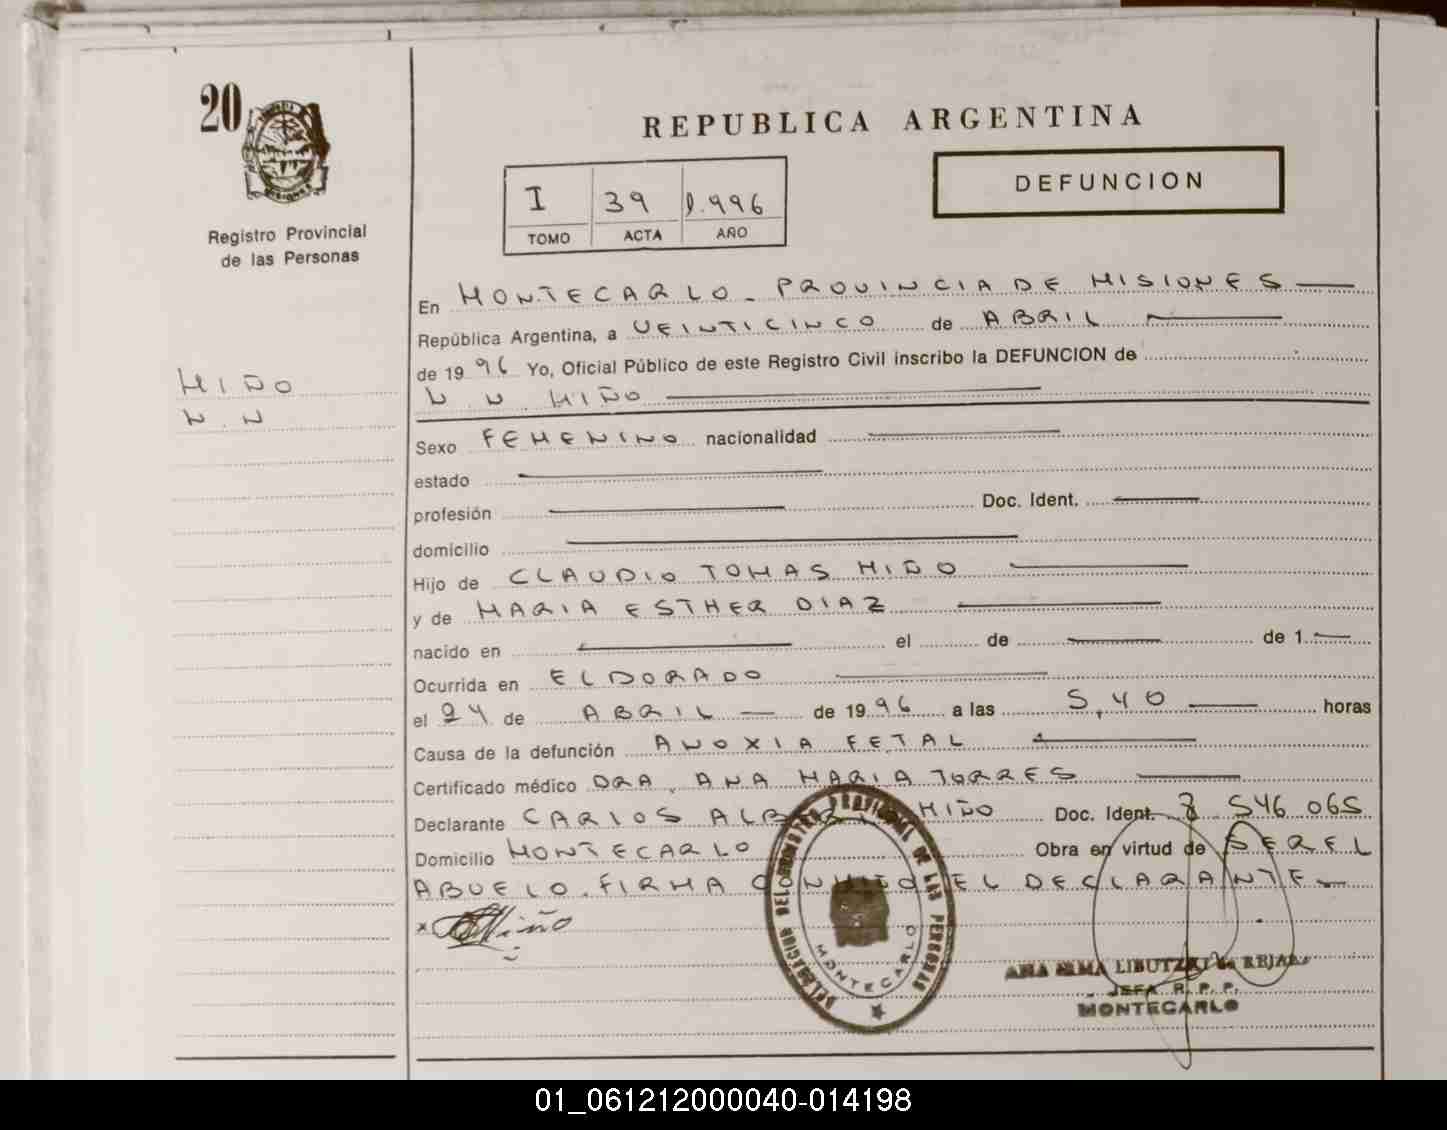 20
Registro Provincial
de las Personas
REPUBLICA ARGENTINA
DEFUNCION
I 39 1.996
TOMO ACTA AÑO
MIÑO
N.N
En MONTECARLO - PROVINCIA DE MISIONES
República Argentina, a VEINTICINCO de ABRIL
de 1996 Yo, Oficial Público de este Registro Civil inscribo la DEFUNCION de
N.N MIÑO
Sexo FEMENINO nacionalidad
estado
profesión Doc. Ident.
domicilio
Hijo de CLAUDIO TOMAS MIÑO
y de MARIA ESTHER DIAZ
nacido en el de de 1
Ocurrida en ELDORADO
el 24 de ABRIL de 1996 a las 5,40 horas
Causa de la defunción ANOXIA FETAL
Certificado médico DRA. ANA MARIA TORRES
Declarante CARLOS MIÑO Doc. Ident. 546.065
Domicilio MONTECARLO Obra en virtud de SER EL
ABUELO. FIRMA EL DECLARANTE
x Miño
DELEGACION DEL REGISTRO PROVINCIAL DE LAS PERSONAS
MONTECARLO
ANA IRMA
JEFA R. P. P.
MONTECARLO
01_061212000040-014198